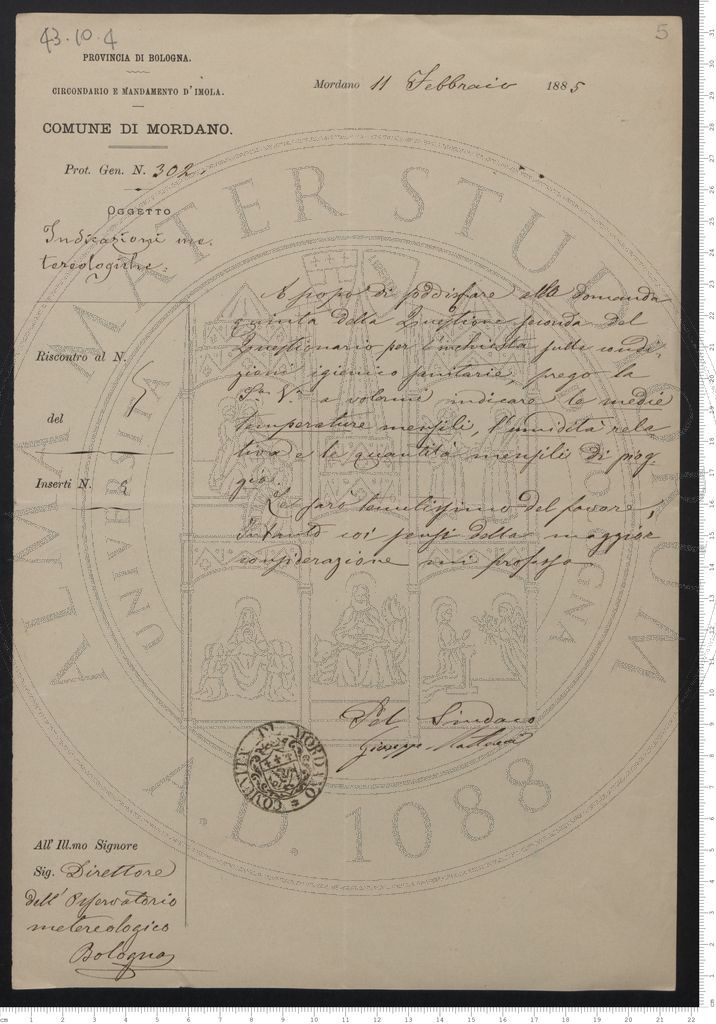 43.10.4
5
PROVINCIA DI BOLOGNA.
CIRCONDARIO E MANDAMENTO D'IMOLA.
COMUNE DI MORDANO.
Mordano 11 Febbraio 1885
Prot. Gen. N. 302.
OGGETTO
Indicazioni me-
tereologiche.
Riscontro al N.
del
Inserti N.
A scopo di soddisfare alla domanda
quinta della Questione seconda del
Questionario per l'inchiesta sulle condi-
zioni igienico sanitarie, prego la
S.a V.a a volermi indicare le medie
temperature mensili, l'umidità rela
tiva e le quantità mensili di piog-
gia.
Le sarò tenutissimo del favore,
Intanto coi sensi della maggior
considerazione mi professo
Pel Sindaco
Giuseppe
COMUNITA DI MORDANO
All' Ill.mo Signore
Sig. Direttore
dell'Osservatorio
metereologico
Bologna
ALMA MATER STUDIORUM
UNIVERSITÀ BOLOGNA
A.D. 1088